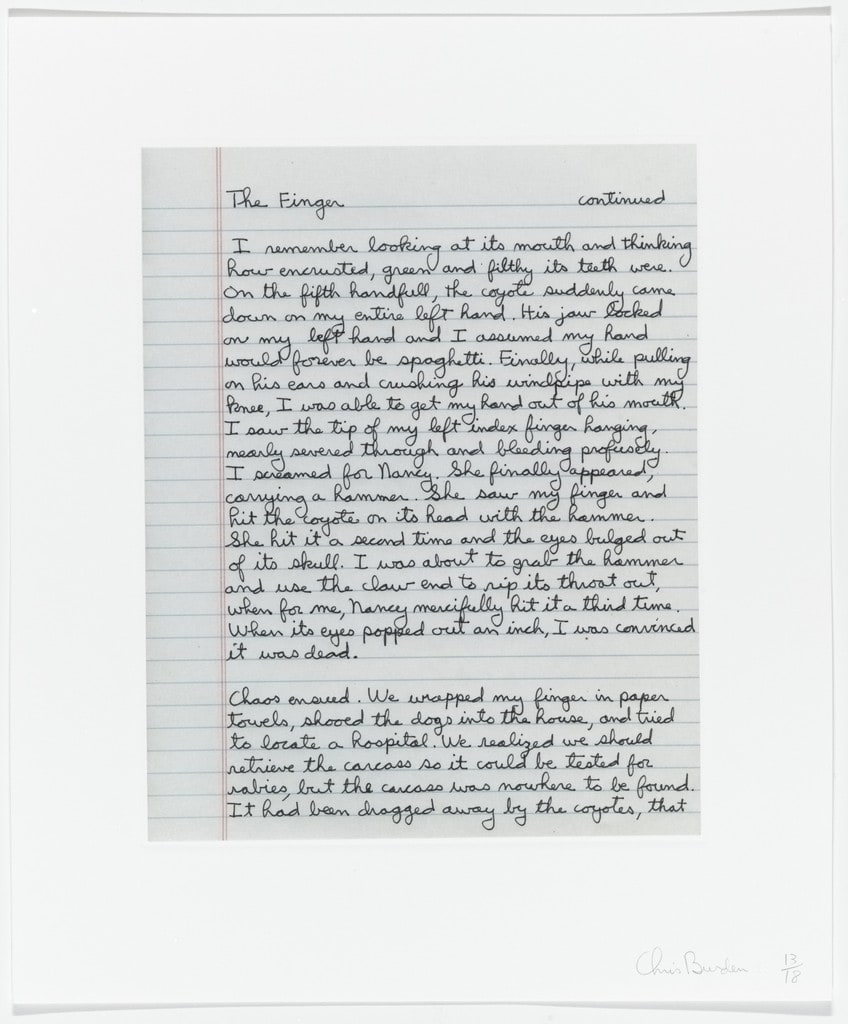 The Finger continued
I remember looking at its mouth and thinking
how encrusted, green and filthy its teeth were.
On the fifth handfull, the coyote suddenly came
down on my entire left hand. His jaw locked
on my left hand and I assumed my hand
would forever be spaghetti. Finally, while pulling
on his ears and crushing his windpipe with my
knee, I was able to get my hand out of his mouth.
I saw the tip of my left index finger hanging,
nearly severed through and bleeding profusely.
I screamed for Nancy. She finally appeared,
carrying a hammer. She saw my finger and
hit the coyote on its head with the hammer.
She hit it a second time and the eyes bulged out
of its skull. I was about to grab the hammer
and use the claw end to rip its throat out,
when for me, Nancy mercifully hit it a third time.
When its eyes popped out an inch, I was convinced
it was dead.
Chaos ensued. We wrapped my finger in paper
towels, shooed the dogs into the house, and tried
to locate a hospital. We realized we should
retrieve the carcass so it could be tested for
rabies, but the carcass was nowhere to be found.
It had been dragged away by the coyotes, that
Chris Burden 13/18